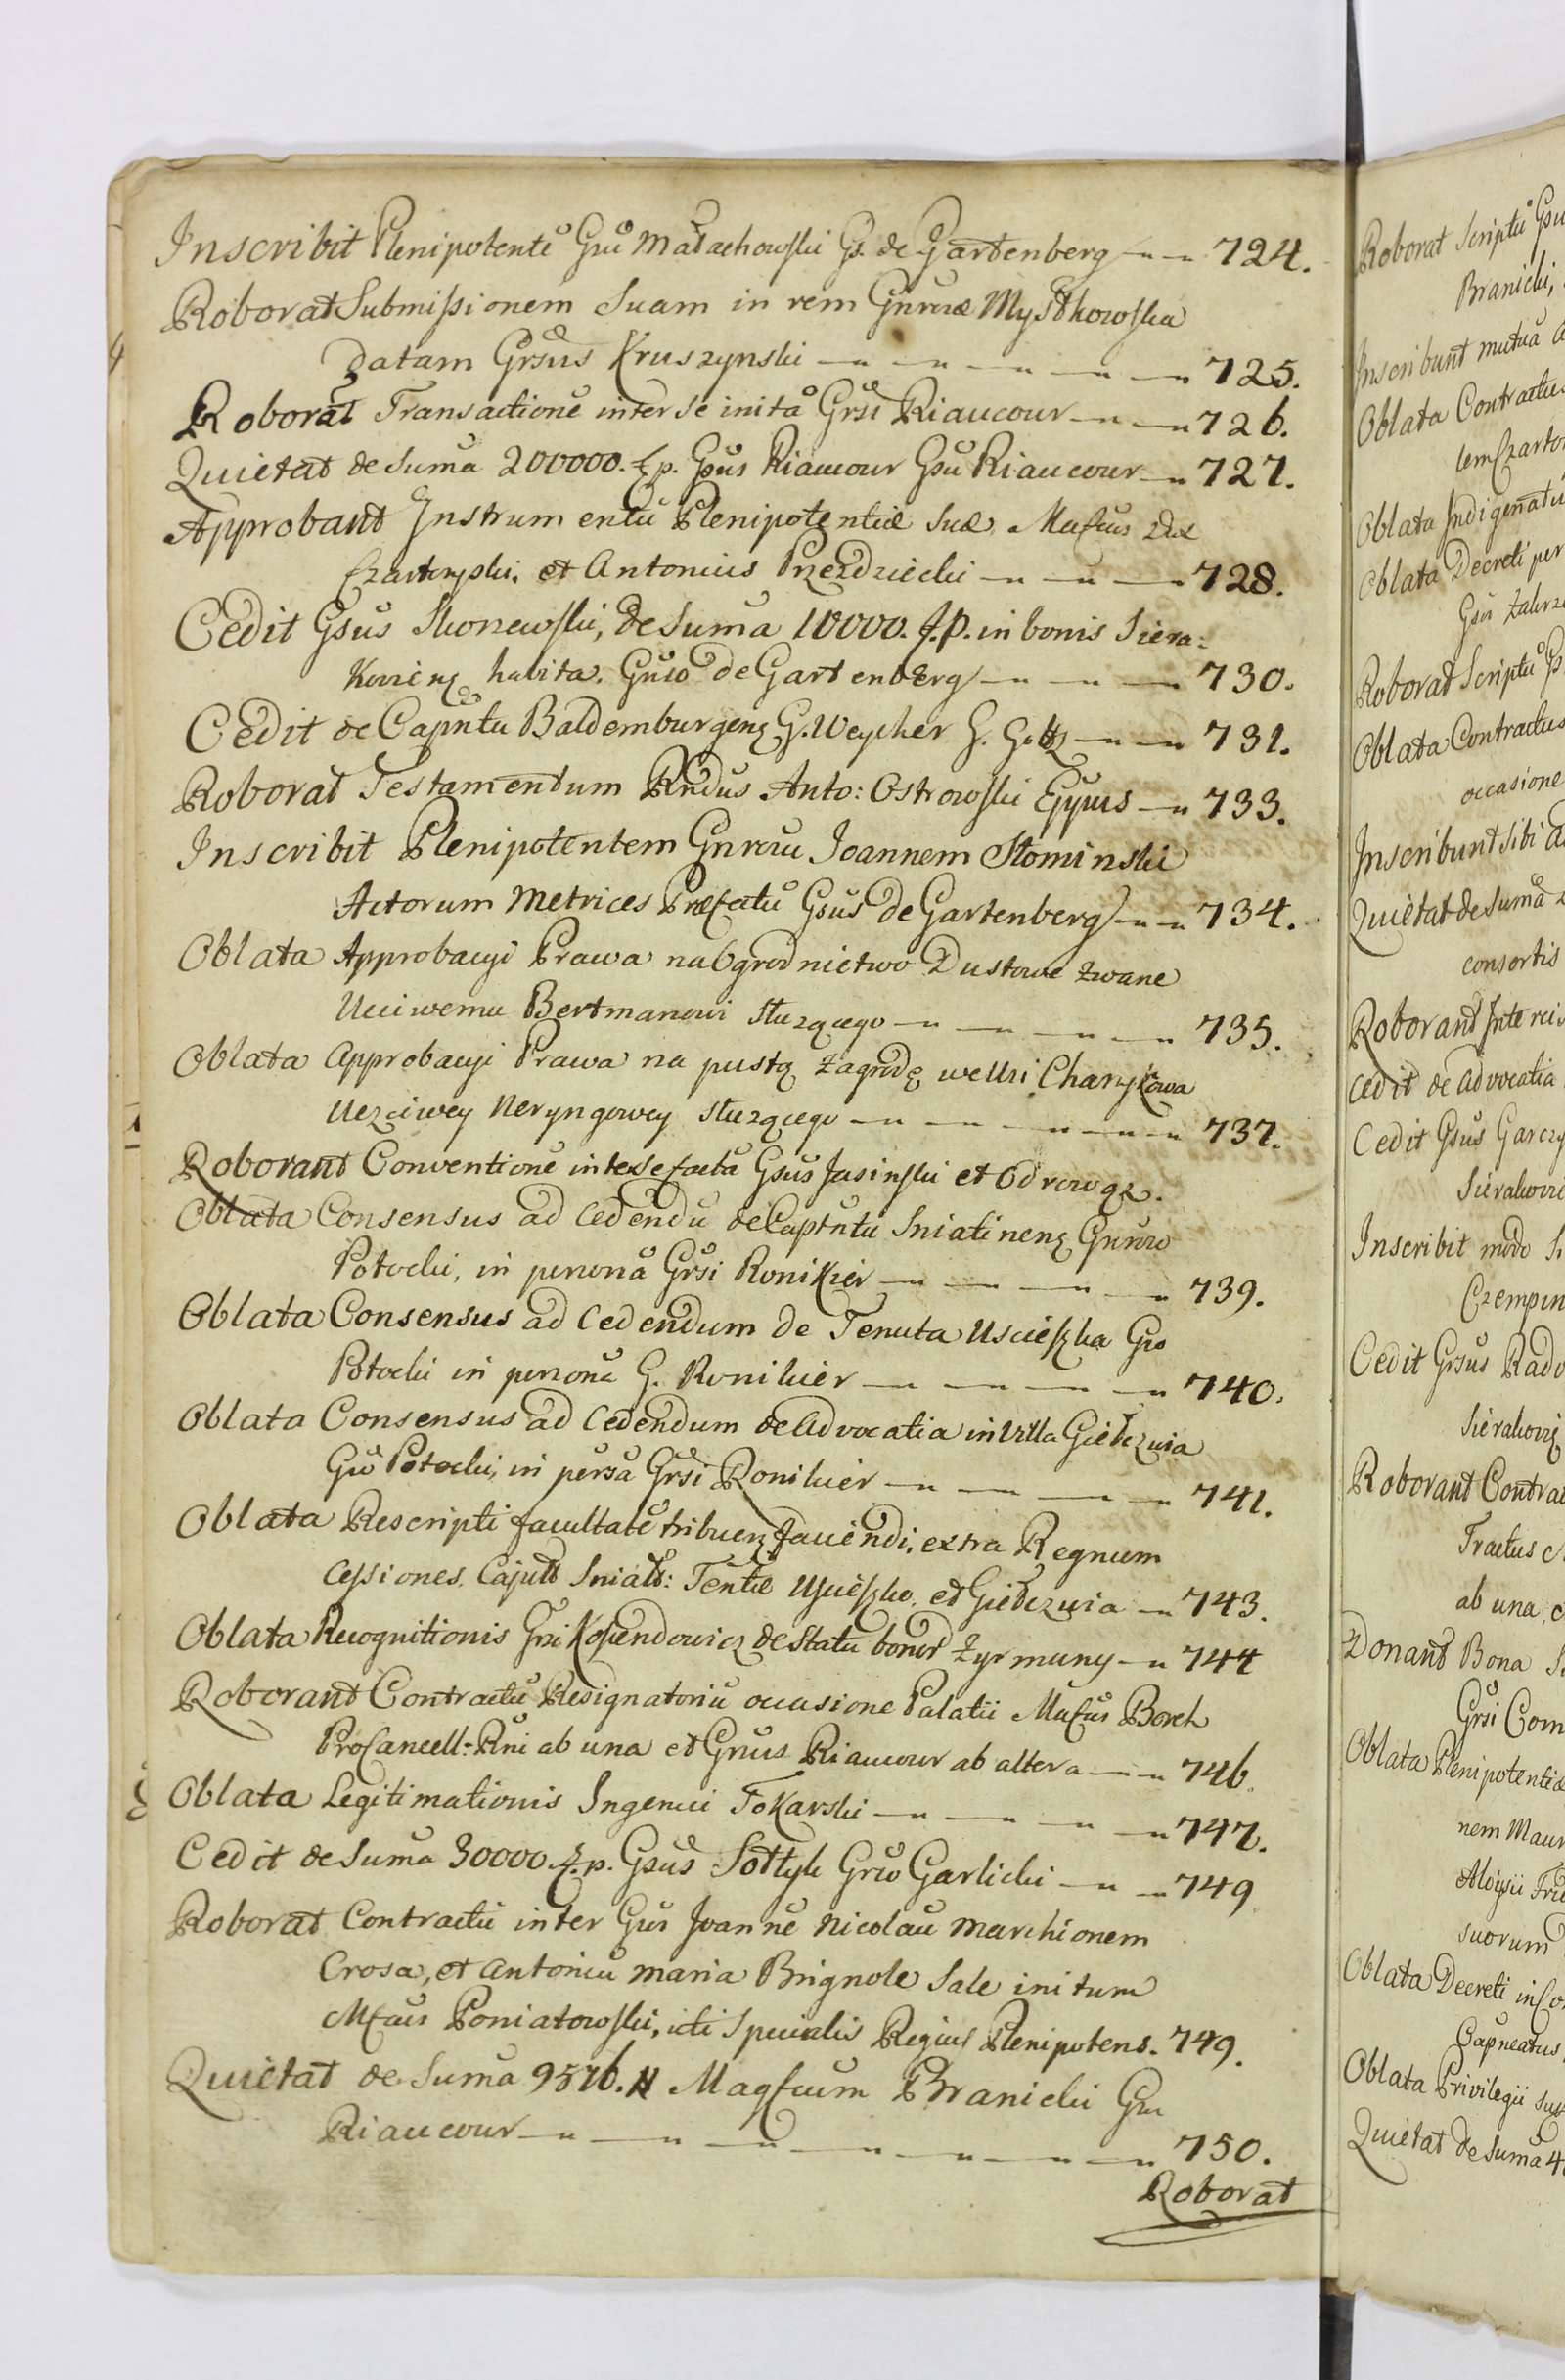 Inscribit Plenipotentē Gnū Małachowski Gs. de Gartenberg 724.
Roborat Submissionem Suam in rem Gnrouæ Mystkowska
Datam Grsus Kruszynski 725.
Roborat Transactionē inter se initā Grsi Riaucour 726.
Quietat de Sumā 200000. fp. Gsus Riaucour Gsu Riaucour 727.
Approbant Instrumentū Plenipotentiæ Suæ Mafcus Dux
Czartoryski, et Antonius Przezdziecki 728.
Cedit Gsus Skorzewski, de Sumā 10000. f.p. in bonis Siera:
Kovienẓ habita. Gnro de Gartenberg 730.
Cedit de Capntu Baldemburgenẓ G. Weyher G. Goltz 731.
Roborat Testamentum Rndus Anto: Ostrowski Eppus 733.
Inscribit Plenipotentem Gnrou Joannem Słominski
Actorum Metrices Præfectū Gsus de Gartenberg 734.
Oblata Approbacyi Prawa na Ogrodnictwo Dustowe zwane
Ucciwemu Bertmanowi służącego 735.
Oblata Approbacyi Prawa na pustą zagrodę we Wsi Charzykowa
Uczciwey Neryngowey służącego 737.
Roborant Conventionē inter se factā Gsus Jasinski et Odrowąz.
Oblata Consensus ad Cedendū de Captntu Sniatinenẓ Gnroro
Potocki, in personā Grsi Ronikier 739.
Oblata Consensus ad Cedendum de Tenuta Uscieszka Gro
Potocki in personā G. Ronikier 740.
Oblata Consensus ad Cedendum de Advocatia in Villa Giełczwia
Gro Potocki, in persā Grsi Ronikier 741.
Oblata Rescripti facultatē tribuenẓ faciendi, extra Regnum
Cessiones. Capntt Sniatt: Tentæ Uscieszko, et Giełczwia 743.
Oblata Recognitionis Grsi Kossendowicz de Statu bonor Zyrmuny 744
Roborant Contractū Resignatoriū occasione Palatii Mafcus Borch
ProCancell: Rni ab una et Grsus Riaucour ab altera 746.
Oblata Legitimationis Ingenui Tokarski 747.
Cedit de Sumā 30000 f.p. Gsus Sołtyk Gro Garlicki 749
Roborat Contractū inter Gsus Joannē Nicolaū Marchionem
Crosa, et Antoniū Maria Brignole Sale initum
Mfcus Poniatowski, uti Specialis Regius Plenipotens. 749.
Quietat de Sumā 9576. # Magfcum Branicki Gsu
Riaucour 750.
Roborat
Roborat Scriptū Gsu
Branicki,
Inscribunt mutuā
Oblata Contractus
lem Czarto
Oblata Indigenatū
Oblata Decreti per
Gsu Zakrz
Roborat Scriptū
Oblata Contractus
occasione
Inscribunt Sibi
Quietat de Sumā
consortis
Roborant Interci
Cedit de Advocatia
Cedit Gsus Garczy
Sierakovi
Inscribit modo
Czempin
Cedit Grsus Rado
Sierakovi
Roborant Contrac
Tractus
ab una,
Donant Bona
Grsi Com
Oblata Plenipotentiæ
nem Maur
Aloysii Frid
suorum
Oblata Decreti in Co
Capneatus
Oblata Privilegii
Quietat de Sumā 4